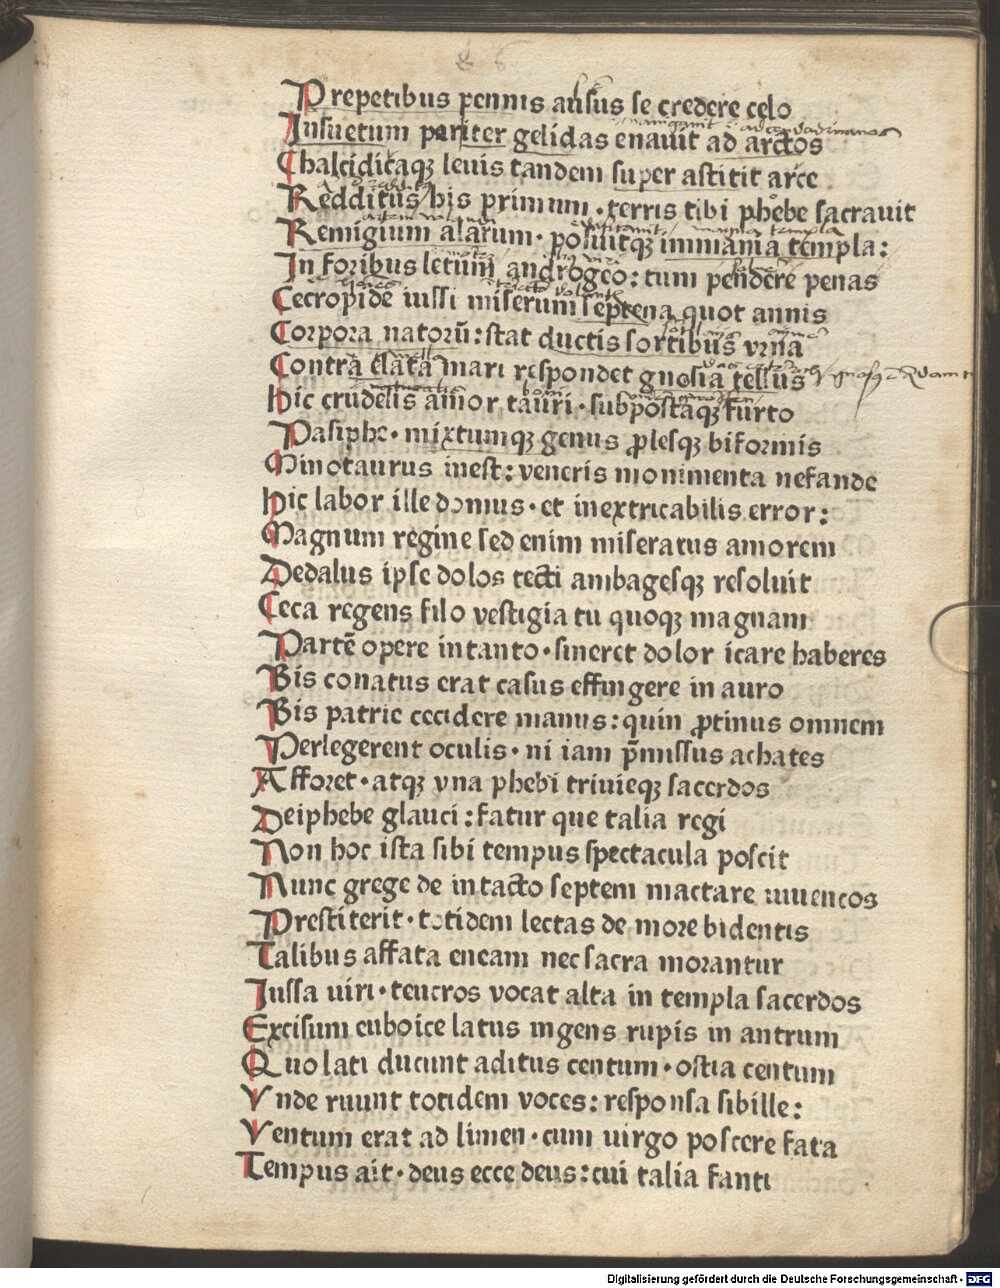 Prepetibus pennis ausus se credere celo
Insuetum pariter gelidas enauit ad arctos
Chalcidicaqꝫ leuis tandem super astitit arce
Redditus his primum · terris tibi phebe sacrauit
Remigium alarum · posuitqꝫ immania templa:
In foribus letum androgeo: tum pendere penas
Cecropide iussi miserum septena quot annis
Corpora natorū: stat ductis sortibus vrna
Contra elata mari respondet gnosia tellus
Hic crudelis amor tauri · subpostaqꝫ furto
Pasiphe · mixtumqꝫ genus ꝓlesqꝫ biformis
Minotaurus inest: veneris monimenta nefande
Hic labor ille domus · et inextricabilis error:
Magnum regine sed enim miseratus amorem
Dedalus ipse dolos tecti ambagesqꝫ resoluit
Ceca regens filo vestigia tu quoqꝫ magnam
Partē opere in tanto · sineret dolor icare haberes
Bis conatus erat casus effingere in auro
Bis patrie cecidere manus: quin ꝓtinus omnem
Perlegerent oculis · ni iam p̄missus achates
Afforet · atqꝫ vna phebi triuieqꝫ sacerdos
Deiphebe glauci: fatur que talia regi
Non hoc ista sibi tempus spectacula poscit
Nunc grege de intacto septem mactare iuuencos
Prestiterit · totidem lectas de more bidentis
Talibus affata eneam nec sacra morantur
Iussa uiri · teucros vocat alta in templa sacerdos
Excisum euboice latus ingens rupis in antrum
Quo lati ducunt aditus centum · ostia centum
Vnde ruunt totidem voces: responsa sibille:
Ventum erat ad limen · cum uirgo poscere fata
Tempus ait · deus ecce deus: cui talia fanti
Digitalisierung gefördert durch die Deutsche Forschungsgemeinschaft · DFG